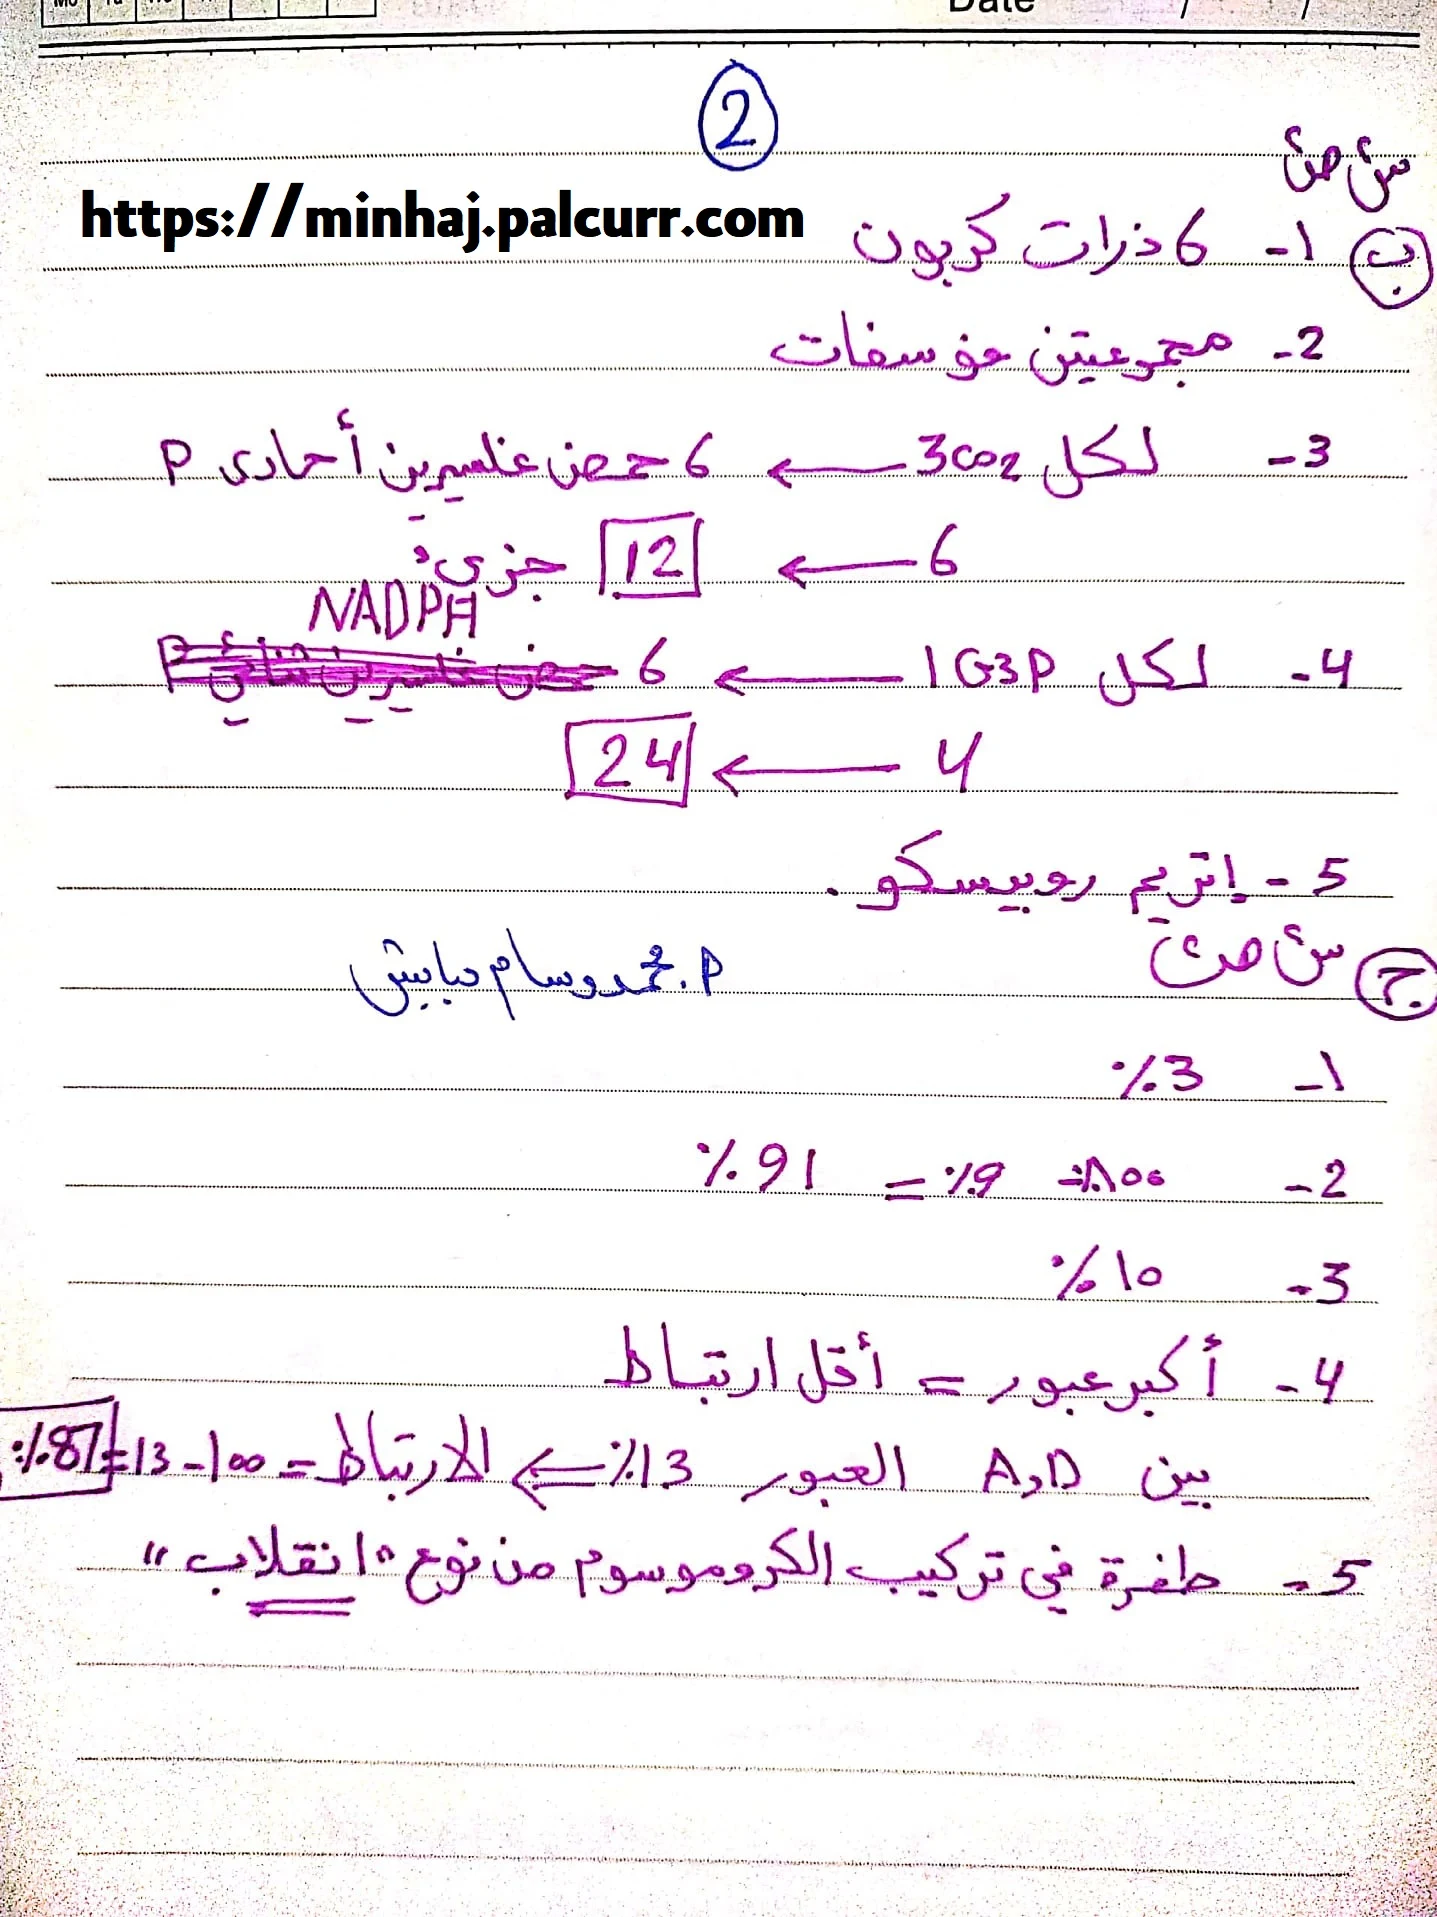 Date / /
2
https://minhaj.palcurr.com
ب 1- 6 ذرات كربون
2- مجموعتين فوسفات
3- لكل 3CO2 ← 6 حمض غليسرين أحادي P
6 ← 12 جزيء
4- لكل 1 G3P ← 6 NADPH
4 ← 24
5- إنزيم روبيسكو.
ج
P. محمد وسام حبايش
1- 3%
2- 100% - 9% = 91%
3- 10%
4- أكبر عبور = أقل ارتباط
بين A و D العبور 13% ← الارتباط = 100 - 13 = 87%
5- طفرة في تركيب الكروموسوم من نوع "انقلاب"